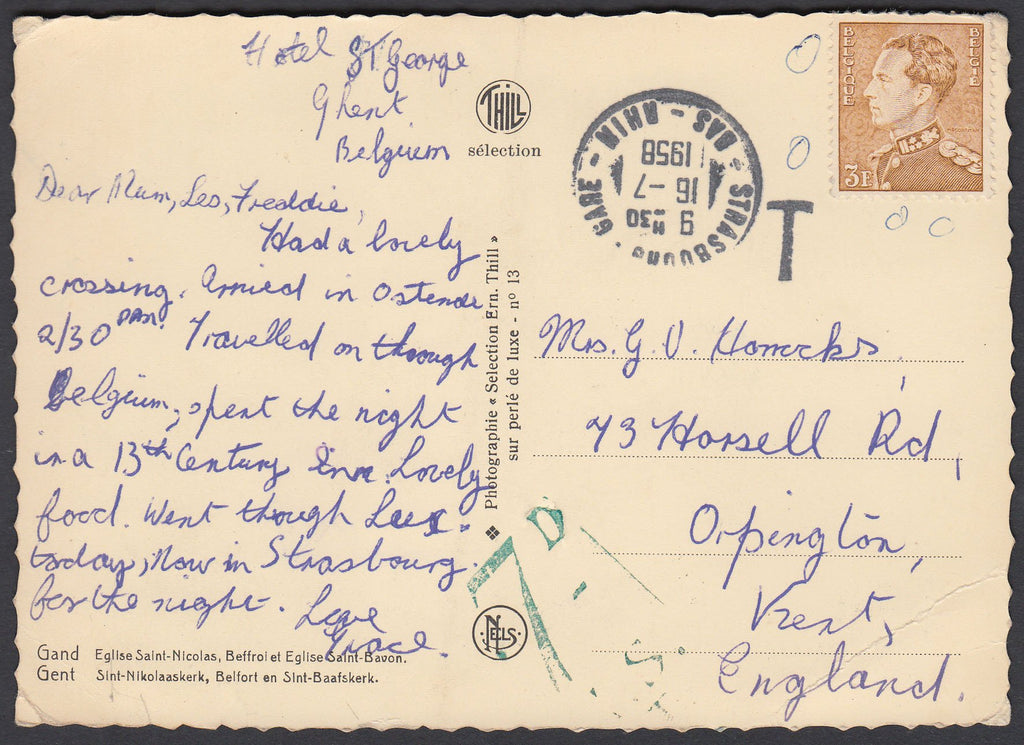 Hotel St George
Ghent
Belgium
Dear Mum, Les, Freddie,
Had a lovely
crossing. Arrived in Ostende
2/30 pm. Travelled on through
Belgium, spent the night
in a 13th Century Inn. Lovely
food. Went through Lux.
today, Now in Strasbourg.
for the night. Love
Grace.
Gand Eglise Saint-Nicolas, Beffroi et Eglise Saint-Bavon.
Gent Sint-Nikolaaskerk, Belfort en Sint-Baafskerk.
THILL
sélection
❖ Photographie « Sélection Ern. Thill »
sur perlé de luxe - nº 13
NELS
STRASBOURG - GARE - RHIN - BAS
9 H30
16 -7
1958
T
BELGIQUE
BELGIE
3F
Mrs. G. V. Horrocks,
43 Horsell Rd,
Orpington,
Kent,
England.
7D